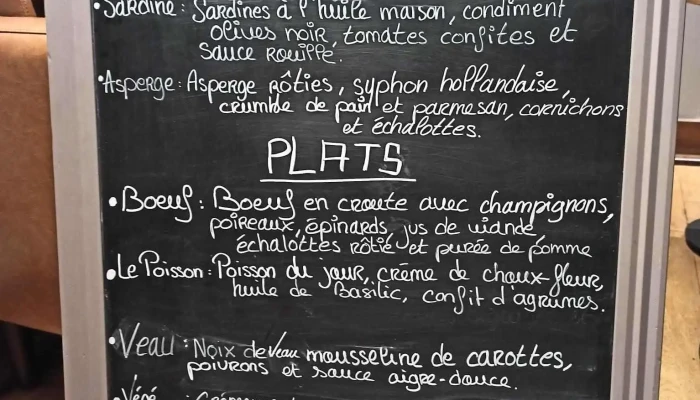 • Sardine : Sardines à l'huile maison, condiment
olives noir, tomates confites et
sauce Rouiffe.
• Asperge : Asperge rôties, syphon hollandaise,
crumble de pain et parmesan, cornichons
et échalottes.
PLATS
• Boeuf : Boeuf en croute avec champignons,
poireaux, épinards, jus de viande,
échalottes rôtie et purée de pomme
• Le Poisson : Poisson du jour, crème de choux-fleur,
huile de Basilic, confit d'agrumes.
• Veau : Noix de Veau mousseline de carottes,
poivrons et sauce aigre-douce.
• Végé